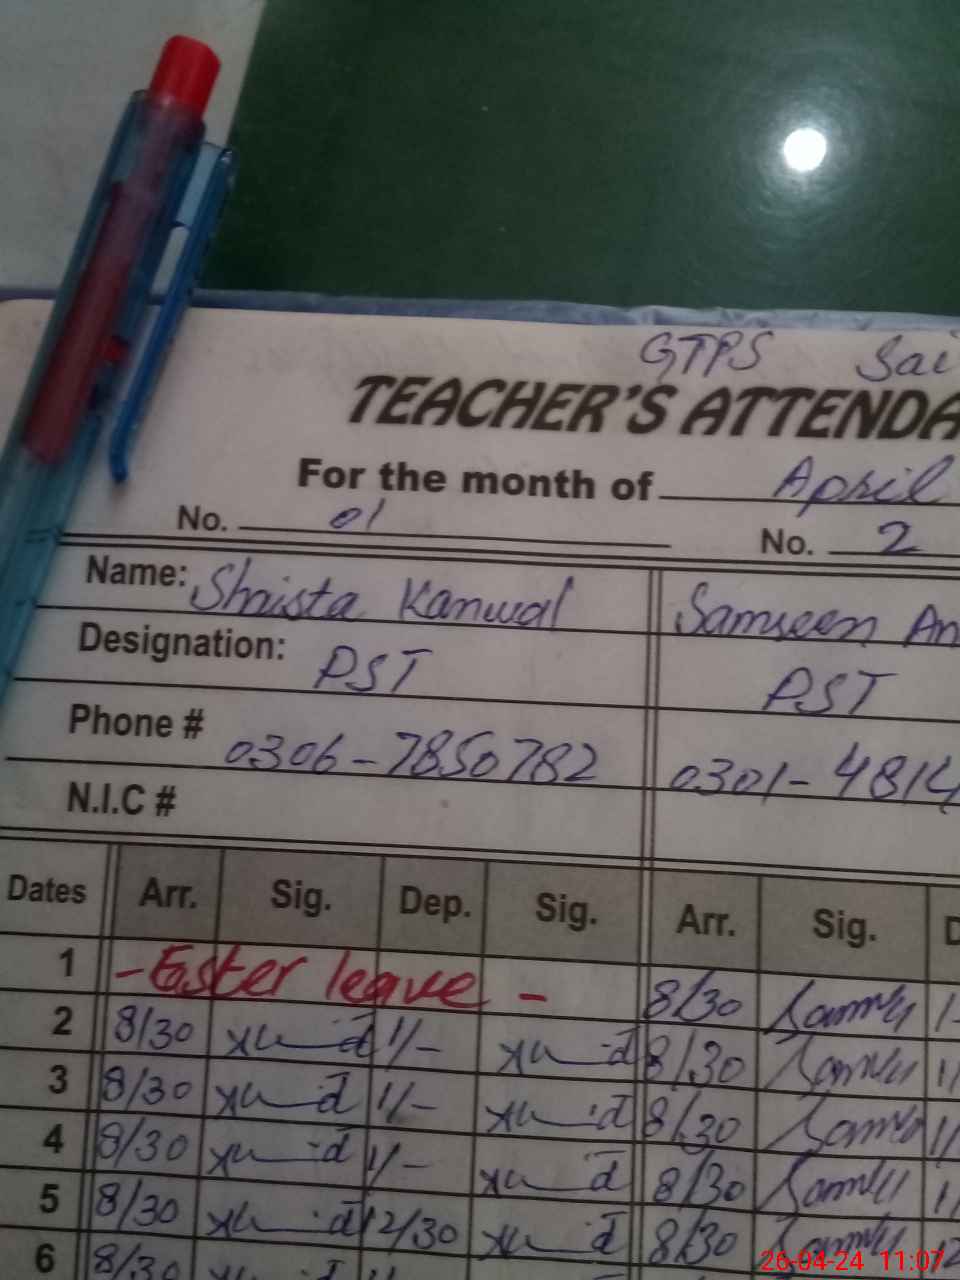 GTPS Sai
TEACHER'S ATTENDA
For the month of April
No. 01 No. 2
Name: Shaista Kanwal Samreen An
Designation: PST PST
Phone # 0306-7850782 0301-4814
N.I.C #
Dates Arr. Sig. Dep. Sig. Arr. Sig. D
1 -Easter leave - 8/30
2 8/30 1/- 8/30
3 8/30 1/- 8/30
4 8/30 1/- 8/30
5 8/30 12/30 8/30
6 8/30
26-04-24 11:07